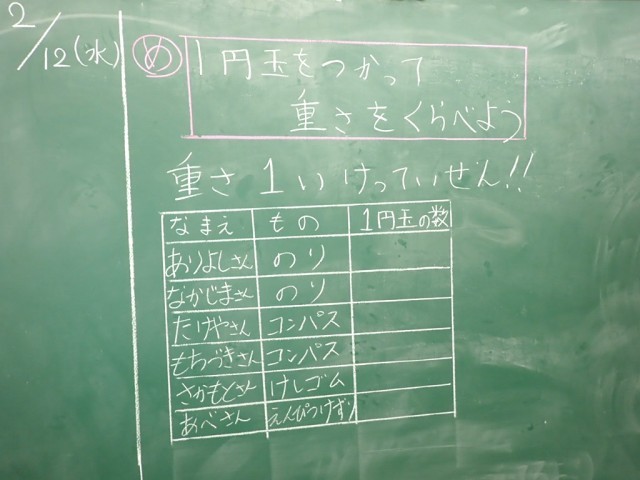 2/12(水)
め 1円玉をつかって
重さをくらべよう
重さ1いけっていせん!!
なまえ もの 1円玉の数
ありよしさん のり
なかじまさん のり
たけやさん コンパス
もちづきさん コンパス
さかもとさん けしゴム
あべさん えんぴつけずり